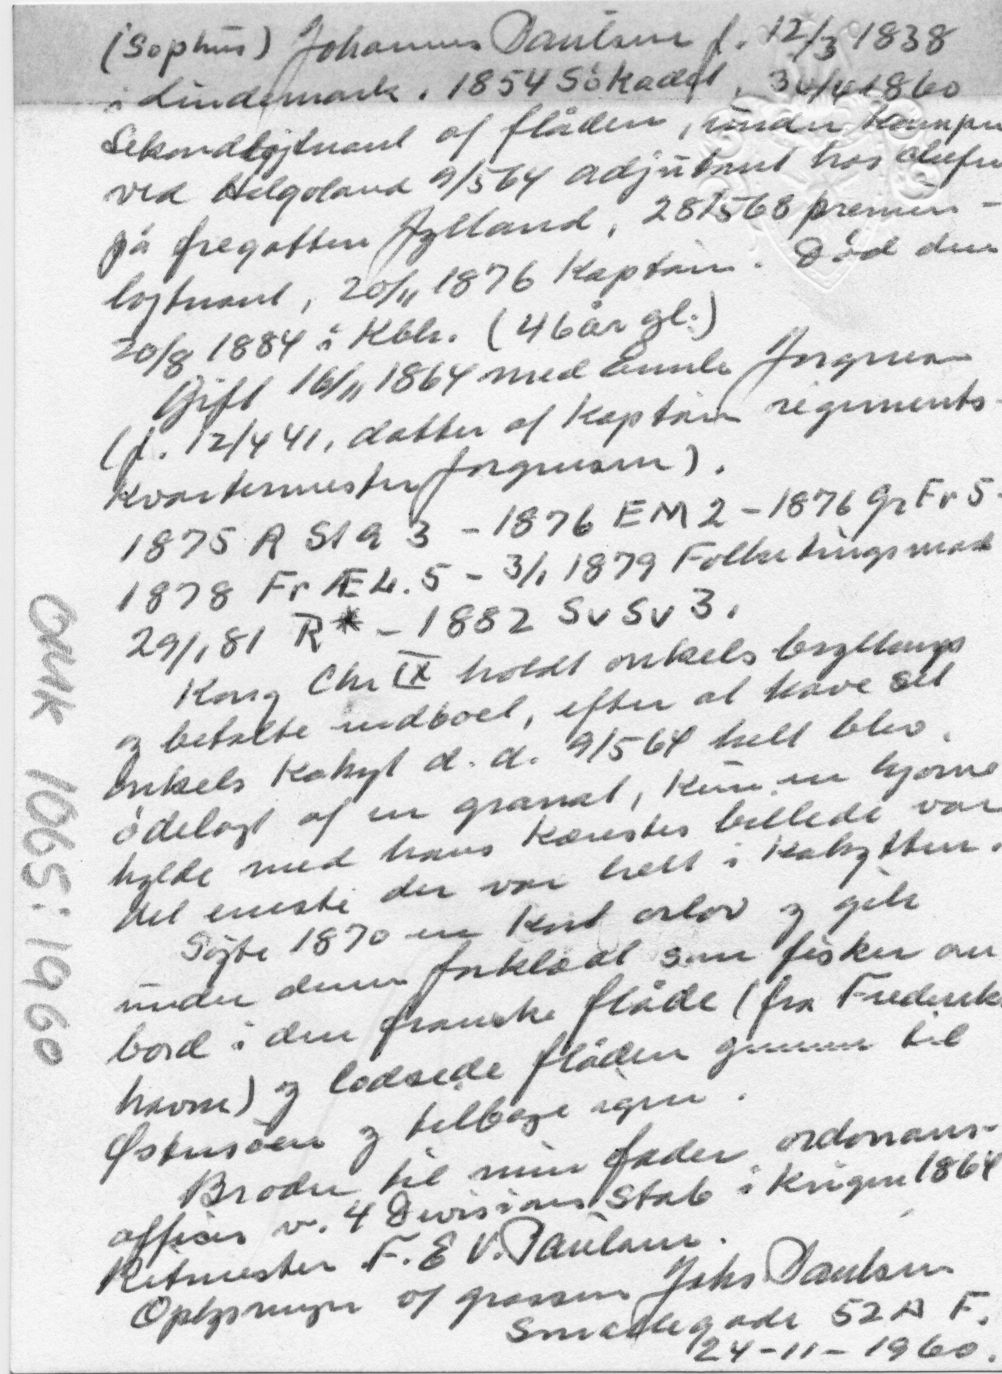 (Sophus) Johannes Paulsen f. 12/3 1838
i Lindemark. 1854 Sökadet, 30/4 1860
Sekondløjtnant af flåden, under Kampen
ved Helgoland 9/5 64 adjutant hos chefen
på fregatten Jylland, 28/5 68 premier-
løjtnant, 20/11 1876 Kaptain. Död den
20/8 1884 i Kbh. (46 år gl.)
Gift 16/11 1864 med Emilie Jørgensen
(f. 12/4 41, datter af Kaptain regiments-
kvartermester Jørgensen).
1875 A St A 3 - 1876 EM 2 - 1876 Gr Fr 5 -
1878 Fr Æ L. 5 - 3/1 1879 Folketingsmand
29/1 81 R* - 1882 Sv Sv 3.
Kong Chr IX holdt onkels bryllup
og betalte indboet, efter at have set
onkels Kahyt d. d. 9/5 64 helt blev
ödelagt af en granat, kun en hjørne
hylde med hans kærestes billede var
det eneste der var helt i Kahytten.
Søgte 1870 en kort orlov og gik
under denne forklædt som fisker om
bord i den franske flåde (fra Frederiks
havn) og lodsede flåden gennem til
Østersöen og tilbage igen.
Broder til min fader ordonnans-
officer v. 4 Divisions Stab i Krigen 1864
Ritmester F. E V. Paulsen.
Oplysninger af Johs Paulsen
Smallegade 52 A F.
24-11-1960.
OMK 1065:1960